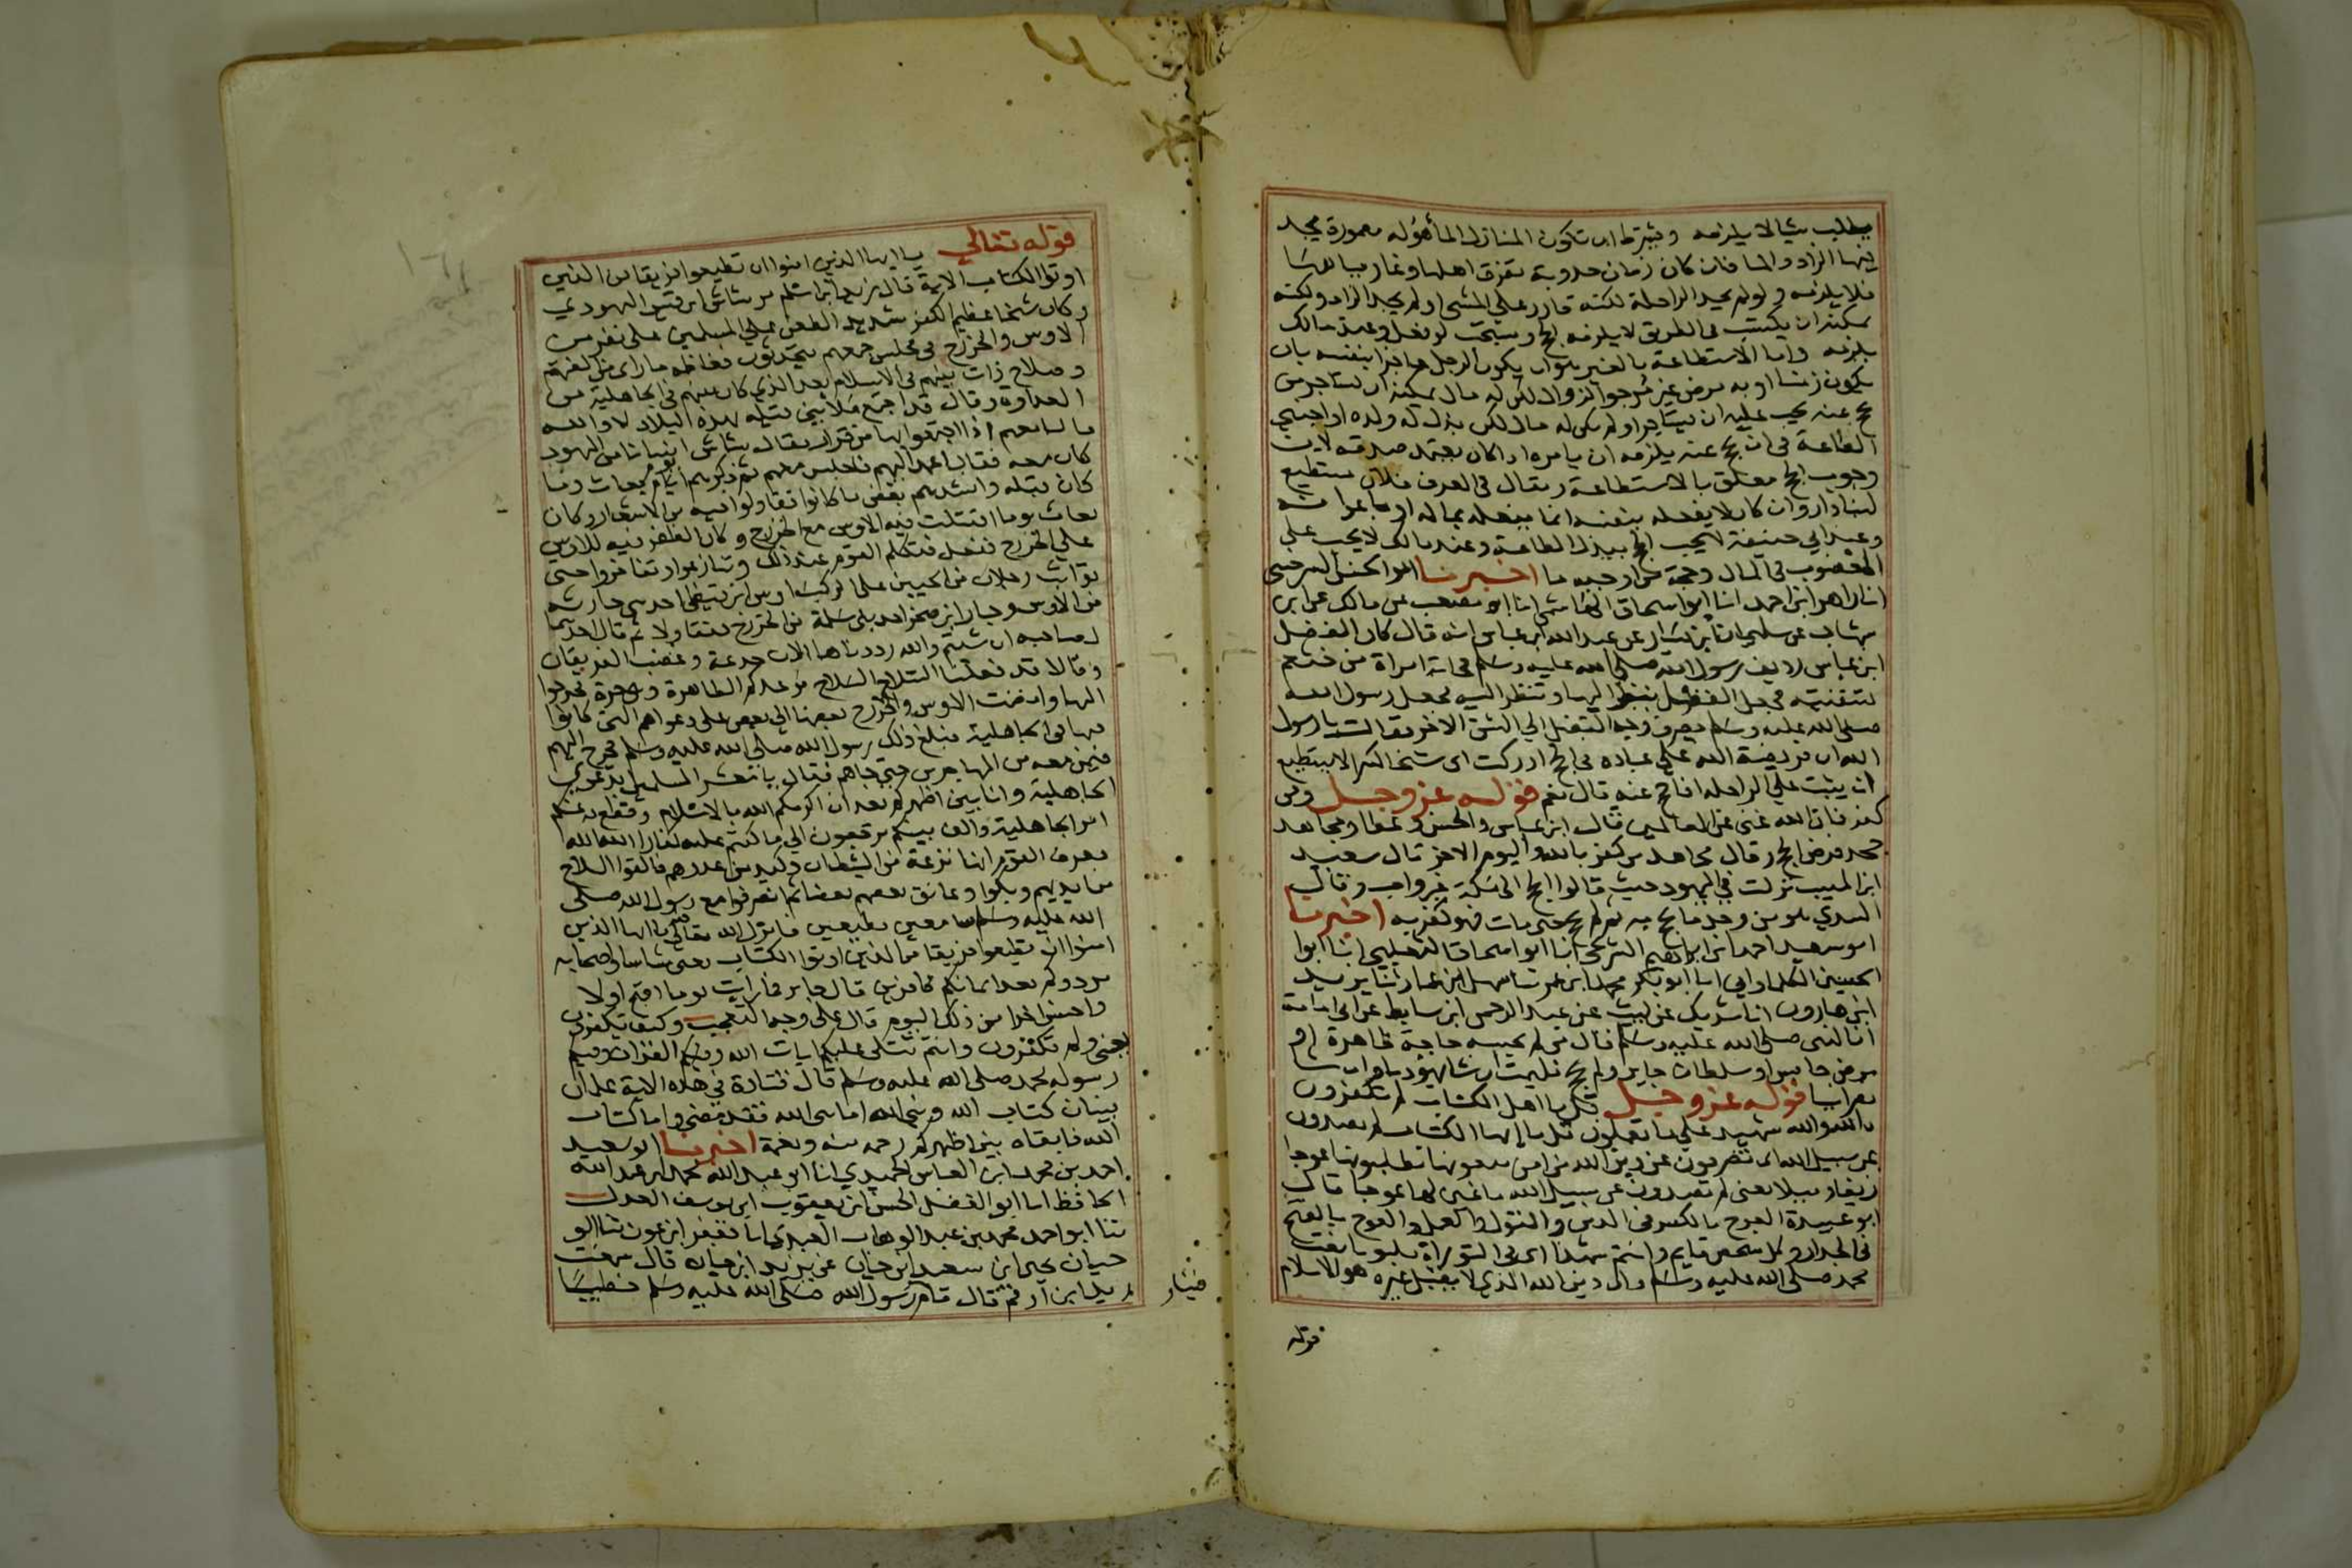 يطلب شيا لا يلزمه ويشترط ان تكون المنازل المأهوله معمورة يجد
فيها الزاد والما فان كان زمان جدوبة تفرق اهلها وغارت مياهها
فلا يلزمه ولو لم يجد الراحلة لكنه قادر علي المشي او لم يجد الزاد ولكنه
يمكنه ان يكتسب في الطريق لا يلزمه الحج ويستحب لو فعل وعند مالك
يلزمه واما الاستطاعة بالغير هو ان يكون الرجل عاجزا بنفسه بان
يكون زمنا او به مرض غير مرجوا الزوال لكن له مال يمكنه ان يستاجر من
يحج عنه يجب عليه ان يستاجر او لم يكن له مال لكن بذل له ولده او اجنبي
الطاعة في ان يحج عنه يلزمه ان يامره اذا كان يعتمد صدقه لان
وجوب الحج معلق بالاستطاعة ويقال في العرف فلان مستطيع
لبنا دار وان كان لا يفعله بنفسه انما يفعله بماله او باعوانه
وعند ابي حنيفة لا يجب الحج ببذل الطاعة وعند مالك لا يجب علي
المغضوب في المال وحجة من اوجبه ما اخبرنا ابوا الحسن السرخسي
انا زاهر ابن احمد انا ابوا سحاق الهاشمي انا ابو مصعب عن مالك عن ابن
شهاب عن سليمان ابن يسار عن عبد الله ابن عباس انه قال كان الفضل
ابن عباس رديف رسول الله صلي الله عليه وسلم فجاته امراة من خثعم
تستفتيه فجعل الفضل ينظر اليها وتنظر اليه فجعل رسول الله
صلي الله عليه وسلم يصرف وجه الفضل الي الشق الاخر فقالت يا رسول
الله ان فريضة الله علي عباده في الحج ادركت ابي شيخا كبيرا لا يستطيع
ان يثبت علي الراحله افاحج عنه قال نعم قوله عز وجل ومن
كفر فان الله غني عن العالمين قال ابن عباس والحسن وعطا ومجاهد
جحد فرض الحج وقال مجاهد من كفر بالله واليوم الاخر قال سعيد
ابن المسيب نزلت في اليهود حيث قالوا الحج الي مكة غير واجب وقال
السدي هو من وجد ما يحج به ثم لم يحج حتي مات فهو كفر به اخبرنا
ابو سعيد احمد ابن ابراهيم الشريحي انا ابوا اسحاق الثعلبي انا ابوا
الحسين الكلماواني انا ابو بكر محمد ابن عمر ثنا سهل ابن عمار ثنا يزيد
ابن هارون انا شريك عن ليث عن عبد الرحمن ابن سابط عن ابي امامة
ان النبي صلي الله عليه وسلم قال من لم يحبسه حاجة ظاهرة او
مرض حابس او سلطان جاير ولم يحج فليمت ان شا يهوديا وان شا
نصرانيا قوله عز وجل قل يا اهل الكتاب لم تكفرون
بايات الله والله شهيد علي ما تعملون قل يا اهل الكتاب لم تصدون
عن سبيل الله اي تصرفون عن دين الله من امن تبغونها تطلبونها عوجا
زيغا وميلا يعني لم تصدون عن سبيل الله باغين لها عوجا قال
ابو عبيدة العوج بالكسر في الدين والقول والعمل والعوج بالفتح
في الجدار وكل شخص قايم وانتم شهدا ان في التوراة مكتوبا نعت
محمد صلي الله عليه وسلم وان دين الله الذي لا يقبل غيره هو الاسلام
قوله
قوله تعالي يا ايها الذين امنوا ان تطيعوا فريقا من الذين
اوتوا الكتاب الاية قال زيد ابن اسلم مر شاس ابن قيس اليهودي
وكان شيخا عظيم الكفر شديد الطعن علي المسلمين علي نفر من
الاوس والخزرج في مجلس جمعهم يتحدثون فغاظه ما راي من الفتهم
وصلاح ذات بينهم في الاسلام بعد الذي كان بينهم في الجاهلية من
العداوة وقال قد اجتمع ملا بني قيله بهذه البلاد لا والله
ما لنا معهم اذا اجتمعوا بها من قرار فقال شاس شابا من اليهود
كان معه فقال اعمد اليهم فاجلس معهم ثم ذكرهم يوم بعاث وما
كان قبله وانشدهم بعض ما كانوا تقاولوا فيه من الاشعار وكان
بعاث يوما اقتتلت فيه الاوس مع الخزرج وكان الظفر فيه للاوس
علي الخزرج ففعل فتكلم القوم عند ذلك وتنازعوا وتفاخروا حتي
تواثب رجلان من الحيين علي الركب اوس ابن قيظي احد بني حارثه
من الاوس وجبار ابن صخر احد بني سلمة من الخزرج فتقاولا ثم قال احدهما
لصاحبه ان شيتم والله رددناها الان جدعة وغضب الفريقان
وقالا قد فعلنا السلاح السلاح موعدكم الظاهرة وهي حرة فخرجوا
اليها وانضمت الاوس والخزرج بعضها الي بعض علي دعواهم التي كانوا
عليها في الجاهلية فبلغ ذلك رسول الله صلي الله عليه وسلم فخرج اليهم
فيمن معه من المهاجرين حتي جاهم فقال يا معشر المسلمين ابدعوي
الجاهلية وانا بين اظهركم بعد ان اكرمكم الله بالاسلام وقطع به عنكم
امر الجاهلية والف بينكم ترجعون الي ما كنتم عليه كفارا الله الله
فعرف القوم انها نزعة من الشيطان وكيد من عدوهم فالقوا السلاح
من ايديهم وبكوا وعانق بعضهم بعضا ثم انصرفوا مع رسول الله صلي
الله عليه وسلم سامعين مطيعين فانزل الله تعالي يا ايها الذين
امنوا ان تطيعوا فريقا من الذين اوتوا الكتاب يعني شاسا واصحابه
يردوكم بعد ايمانكم كافرين قال جابر فما رايت يوما اقبح اولا
واحسن اخرا من ذلك اليوم قال علي وجه التعجب وكيف تكفرون
يعني ولم تكفرون وانتم تتلي عليكم ايات الله وفيكم القران وفيكم
رسوله محمد صلي الله عليه وسلم قال قتادة في هذه الاية علمان
بينان كتاب الله ونبي الله اما نبي الله فقد مضي واما كتاب
الله فابقاه بين اظهركم رحمه منه ونعمة اخبرنا ابو سعيد
احمد بن محمد ابن العباس الحميدي انا ابو عبد الله محمد بن عبد الله
الحافظ انا ابوا الفضل الحسن ابن يعقوب ابن يوسف العدل
ثنا ابو احمد محمد بن عبد الوهاب العبدي انا جعفر ابن عون ثنا ابو
حيان يحيي ابن سعيد ابن حيان عن يزيد ابن حيان قال سمعت
زيد ابن ارقم قال قام رسول الله صلي الله عليه وسلم خطيبا